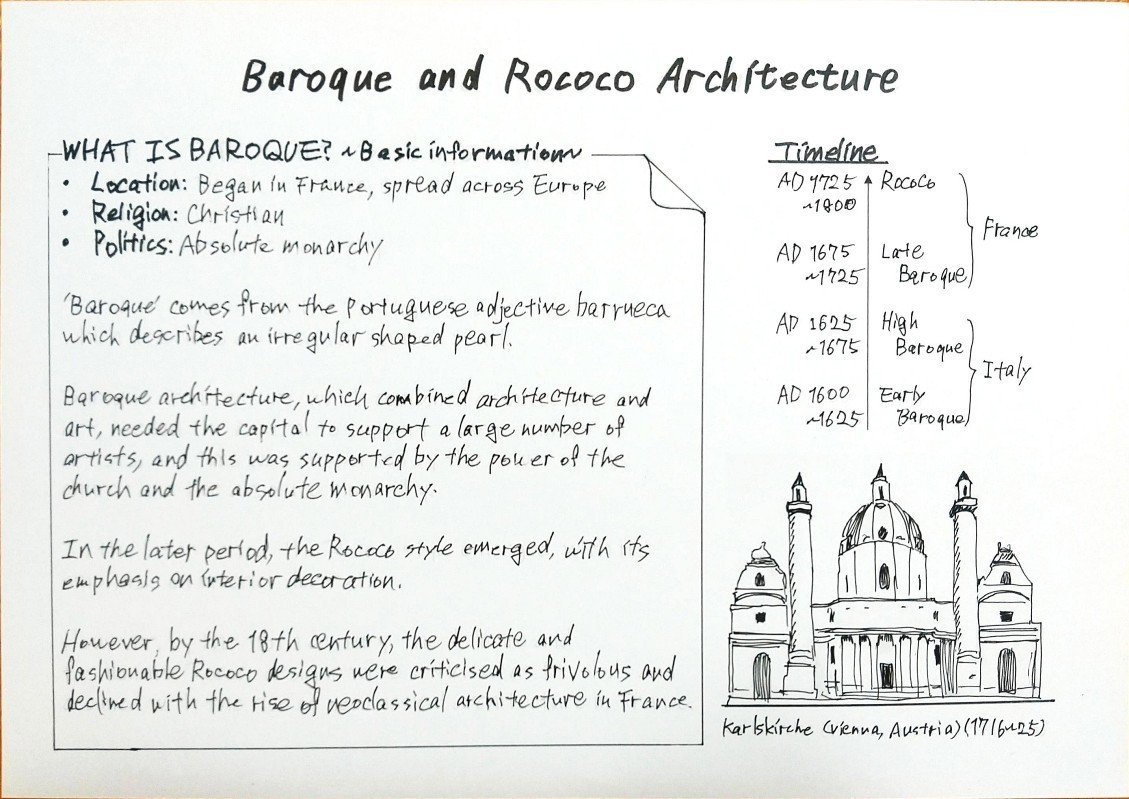 Baroque and Rococo Architecture
WHAT IS BAROQUE? ~Basic information~
• Location: Began in France, spread across Europe
• Religion: Christian
• Politics: Absolute monarchy
'Baroque' comes from the Portuguese adjective barrueca
which describes an irregular shaped pearl.
Baroque architecture, which combined architecture and
art, needed the capital to support a large number of
artists, and this was supported by the power of the
church and the absolute monarchy.
In the later period, the Rococo style emerged, with its
emphasis on interior decoration.
However, by the 18th century, the delicate and
fashionable Rococo designs were criticised as frivolous and
declined with the rise of neoclassical architecture in France.
Timeline
AD 1725 Rococo
~1800
France
AD 1675 Late
~1725 Baroque
AD 1625 High
~1675 Baroque
Italy
AD 1600 Early
~1625 Baroque
Karlskirche (Vienna, Austria) (1716~25)